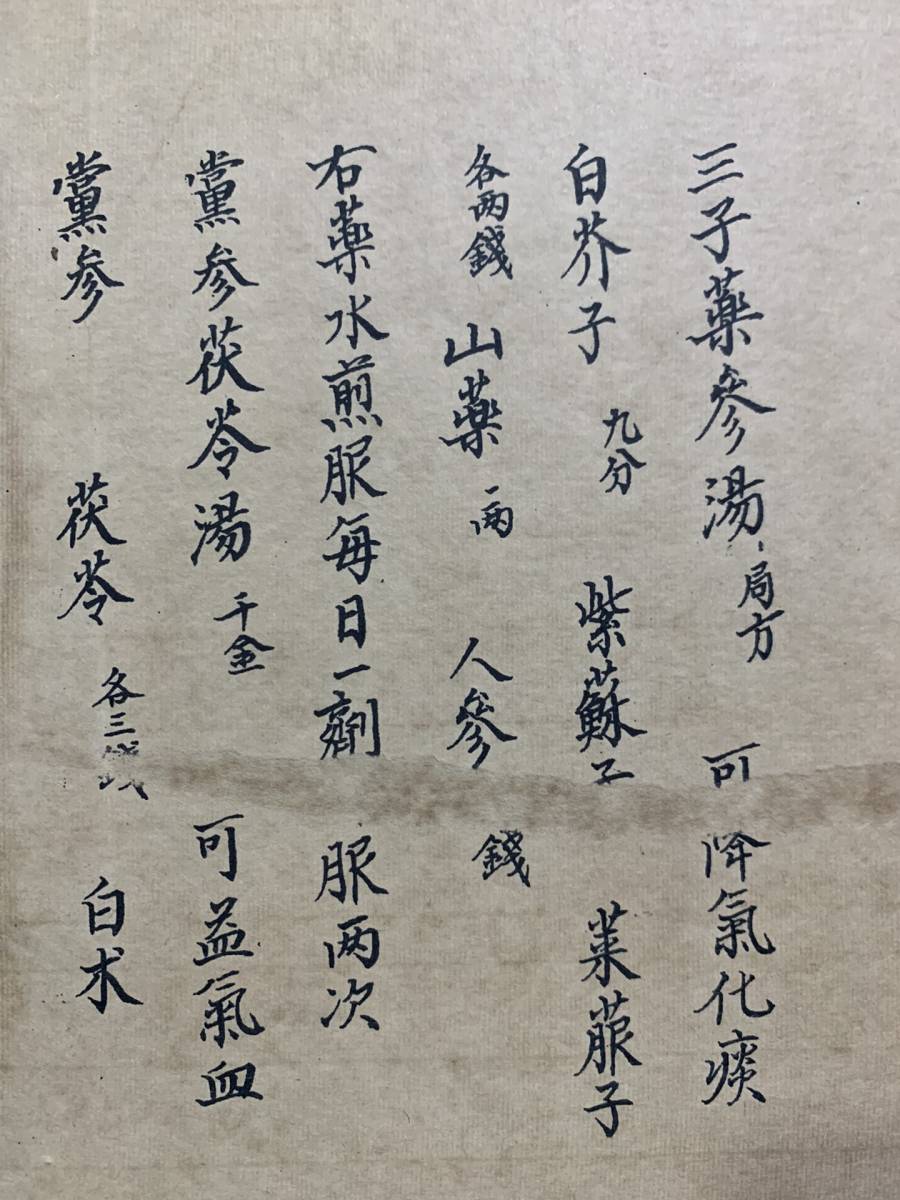 三子藥參湯 局方 可降氣化痰
白芥子 九分 紫蘇子 莱菔子
各两錢 山藥 一两 人參 錢
右藥水煎服每日一劑 服两次
黨参茯苓湯 千金 可益氣血
黨参 茯苓 各三錢 白术